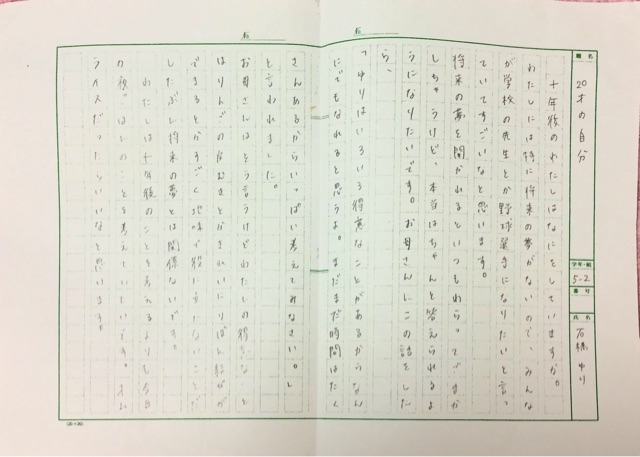 題名
20才の自分
学年・組
5-2
番号
氏名
石橋ゆり
十年後のわたしはなにをしていますか。
わたしには特に将来の夢がないので、みんな
が学校の先生とか野球選手になりたいと言っ
ていてすごいなと思います。
将来の夢を聞かれるといつもわらってごまか
しちゃうけど、本当はちゃんと答えられるよ
うになりたいです。お母さんにこの話をした
ら、
「ゆりはいろいろ得意なことがあるからなん
にでもなれると思うよ。まだまだ時間はたく
さんあるからいっぱい考えてみなさい。」
と言われました。
お母さんはそう言うけどわたしの得意なこと
はりんごの
がきれいにりぼん結びが
できるとかすごく地味で役に立たないことだ
し、たぶん将来の夢とは関係ないです。
わたしは十年後のことを考えるよりも今日
の夜ごはんのことを考えていたいです。
ライスだったらいいなと思います。
No
No
(20×20)